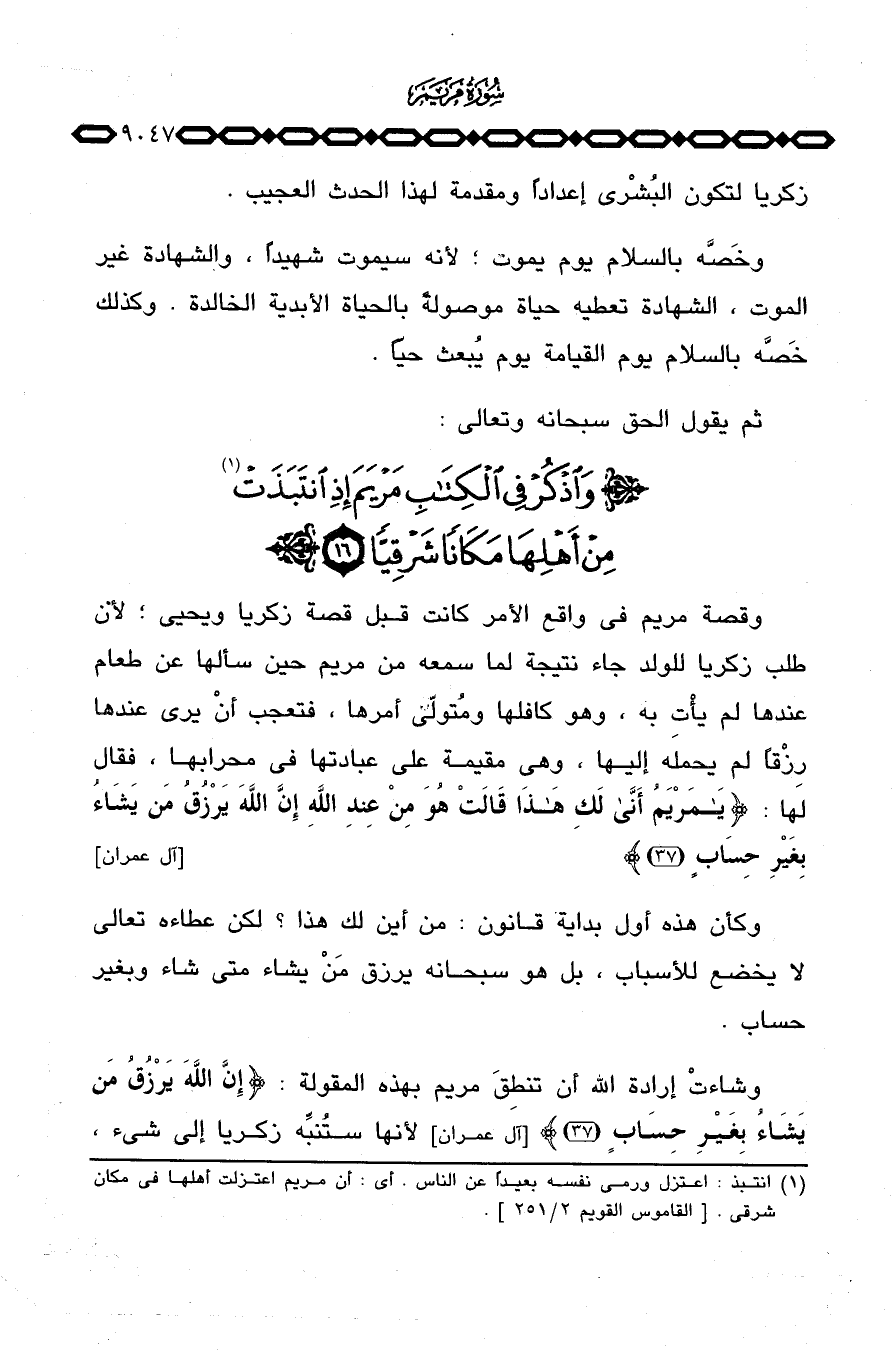 سُورَةُ مَرْيَمَ
٩٠٤٧
زكريا لتكون البُشْرى إعداداً ومقدمة لهذا الحدث العجيب .
وخَصَّه بالسلام يوم يموت ؛ لأنه سيموت شهيداً ، والشهادة غير
الموت ، الشهادة تعطيه حياة موصولةً بالحياة الأبدية الخالدة . وكذلك
خَصَّه بالسلام يوم القيامة يوم يُبعث حياً .
ثم يقول الحق سبحانه وتعالى :
﴿ وَٱذْكُرْ فِى ٱلْكِتَٰبِ مَرْيَمَ إِذِ ٱنتَبَذَتْ (١)
مِنْ أَهْلِهَا مَكَانًا شَرْقِيًّا ١٦ ﴾
وقصة مريم فى واقع الأمر كانت قبل قصة زكريا ويحيى ؛ لأن
طلب زكريا للولد جاء نتيجة لما سمعه من مريم حين سألها عن طعام
عندها لم يأْتِ به ، وهو كافلها ومُتولّى أمرها ، فتعجب أنْ يرى عندها
رِزْقاً لم يحمله إليها ، وهى مقيمة على عبادتها فى محرابها ، فقال
لها : ﴿ يَٰمَرْيَمُ أَنَّىٰ لَكِ هَٰذَا قَالَتْ هُوَ مِنْ عِندِ اللَّهِ إِنَّ اللَّهَ يَرْزُقُ مَن يَشَاءُ
بِغَيْرِ حِسَابٍ (٣٧) ﴾ [آل عمران]
وكأن هذه أول بداية قانون : من أين لك هذا ؟ لكن عطاءه تعالى
لا يخضع للأسباب ، بل هو سبحانه يرزق مَنْ يشاء متى شاء وبغير
حساب .
وشاءتْ إرادة الله أن تنطِقَ مريم بهذه المقولة : ﴿ إِنَّ اللَّهَ يَرْزُقُ مَن
يَشَاءُ بِغَيْرِ حِسَابٍ (٣٧) ﴾ [آل عمران] لأنها ستُنبِّه زكريا إلى شىء ،
(١) انتبذ : اعتزل ورمى نفسه بعيداً عن الناس . أى : أن مريم اعتزلت أهلها فى مكان
شرقى . [ القاموس القويم ٢٥١/٢ ] .